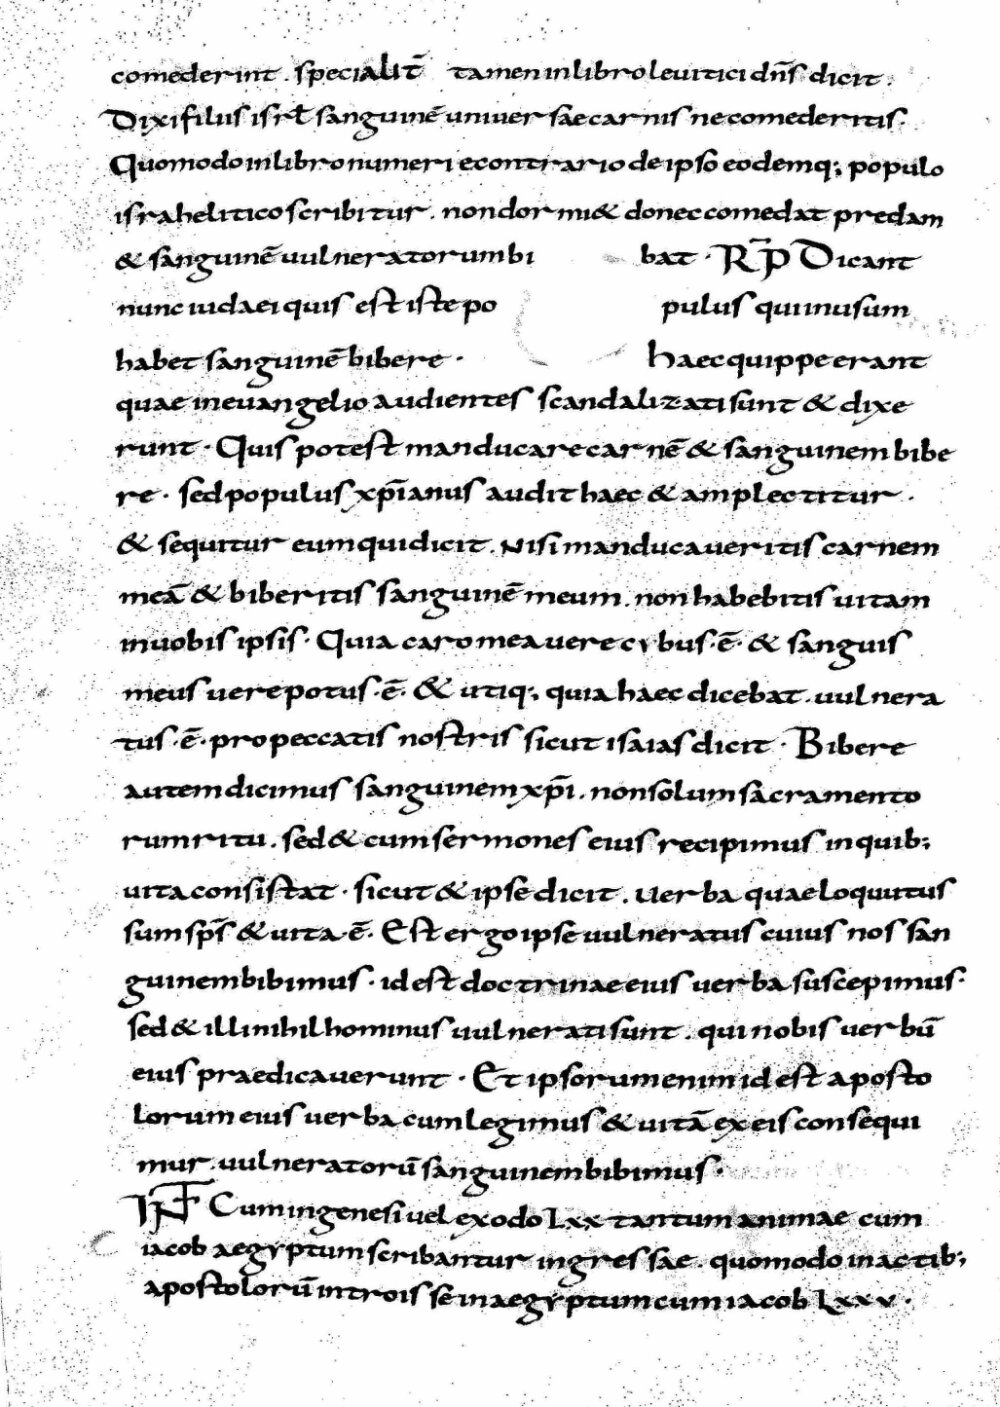 comederint. specialit̄ tamen in libro leuitici dn̄s dicit.
Dixi filiis isrl̄ sanguinē uniuersae carnis ne comederitis.
Quomodo in libro numeri econtrario de ipso eodemq; populo
israhelitico scribitur. non dormi& donec comedat predam
& sanguinē uulneratorum bi bat · R̄P Dicant
nunc iudaei quis est iste po pulus qui in usum
habet sanguinē bibere · haec quippe erant
quae in euangelio audientes scandalizati sunt & dixe
runt · Quis potest manducare carnē & sanguinem bibe
re · sed populus xp̄ianus audit haec & amplectitur.
& sequitur eum qui dicit. Nisi manducaueritis carnem
meā & biberitis sanguinē meum. non habebitis uitam
in uobis ipsis · Quia caro mea uere cybus · ē · & sanguis
meus uere potus · ē · & utiq; quia haec dicebat. uulnera
tus · ē · pro peccatis nostris sicut isaias dicit · Bibere
autem dicimus sanguinem xp̄i. non solum sacramento
rum ritu. sed & cum sermones eius recipimus in quib;
uita consistat · sicut & ipse dicit. uerba quae loquutus
sum sp̄s & uita · ē · Est ergo ipse uulneratus cuius nos san
guinem bibimus · id est doctrinae eius uerba suscepimus ·
sed & illi nihilhominus uulnerati sunt. qui nobis uerbū
eius praedicauerunt · Et ipsorum enim id est aposto
lorum eius uerba cum legimus & uitā ex eis consequi
mur. uulneratorū sanguinem bibimus ·
INT̄ Cum in genesi uel exodo Lxx tantum animae cum
iacob aegyptum scribantur ingressae. quomodo in actib;
apostolorū introisse in aegyptum cum iacob Lxxv ·